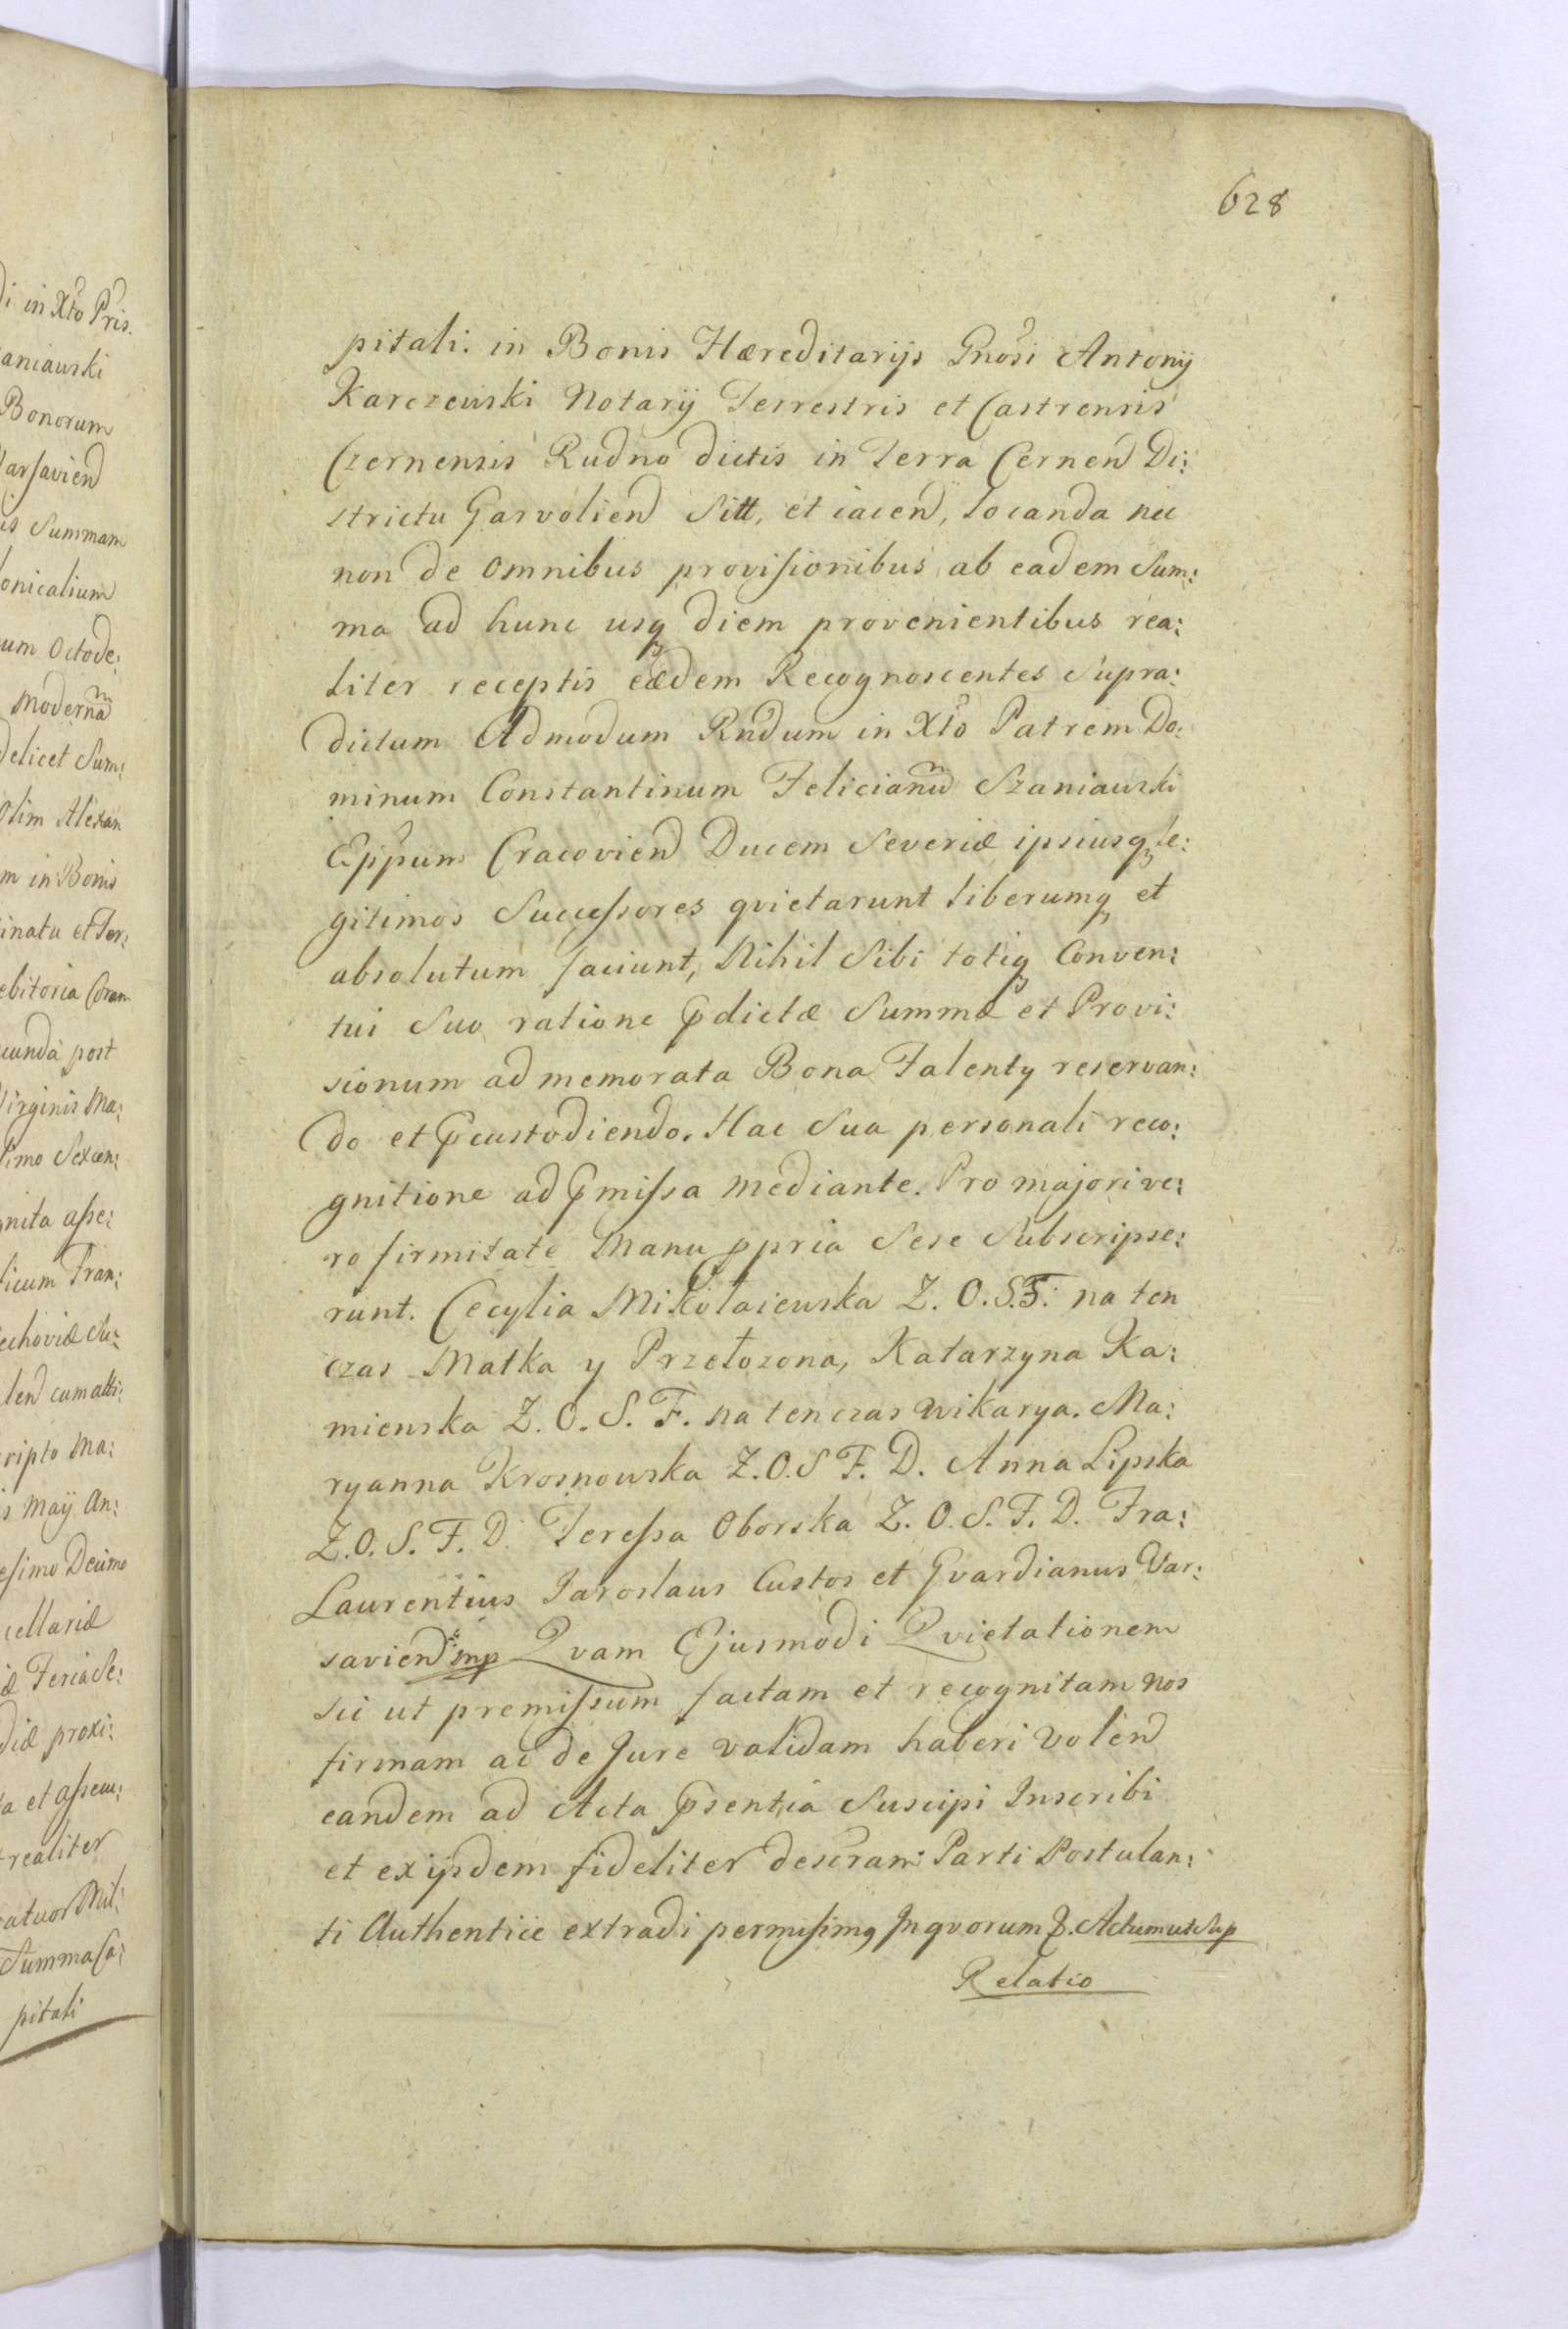 628
pitali. in Bonis Hæreditarijs Gnosi Antonij
Karczewski Notarij Terrestris et Castrensis
Czernensis Rudno dictis in Terra Cernen Di:
strictu Garvolien Sitt, et iacen, locanda nec
non de omnibus provisionibus ab eadem Sum:
ma ad hunc usq diem provenientibus rea:
liter receptis eædem Recognoscentes Supra:
dictum Admodum Rndum in Xto Patrem Do:
minum Constantinum Felicianu Szaniawski
Eppum Cracovien Ducem Severiæ ipsiusq le:
gitimos Successores quietarunt liberumq et
absolutum faciunt, Nihil Sibi totiq Conven:
tui Suo ratione pdictæ Summæ et Provi:
sionum ad memorata Bona Talenty reservan:
do et pcustodiendo. Hac Sua personali reco:
gnitione ad pmissa mediante. Pro majori ve:
ro firmitate Manu ppria Sese Subscripse:
runt. Cecylia Mikołaiewska Z. O. S. F. na ten
czas Matka y Przełozona, Katarzyna Ka:
mienska Z. O. S. F. na ten czas wikarya. Ma:
ryanna Krosnowska Z. O. S F. D. Anna Lipska
Z. O. S. F. D. Teressa Oborska Z. O. S. F. D. Fra:
Laurentius Jaroslaus Custos et Gvardianus Var:
savien mp Qvam Ejusmodi Qvietationem
sic ut premissum factam et recognitam nos
firmam ac de Jure validam haberi volen
eandem ad Acta psentia Suscipi Inscribi
et exijsdem fideliter descram Parti Postulan:
ti Authentice extradi permisimq Inqvorum f. Actum ut Sup
Relatio
di in Xto Pris.
aniawski
Bonorum
arsavien
is Summam
onicalium
um Octode:
moderna
delicet Sum:
Olim Alexan
m in Bonis
inatu et Ter:
ebitoria Coram
cunda post
Virginis Ma:
simo Sexcen:
gnita asse:
licum Fran:
echoviæ Su:
len cum atti:
cripto Ma:
is Maij An:
esimo Decimo
cellariæ
æ Feria Se:
diæ proxi:
ta et assecu:
t realiter
atuor Mil:
Summa Ca:
pitali